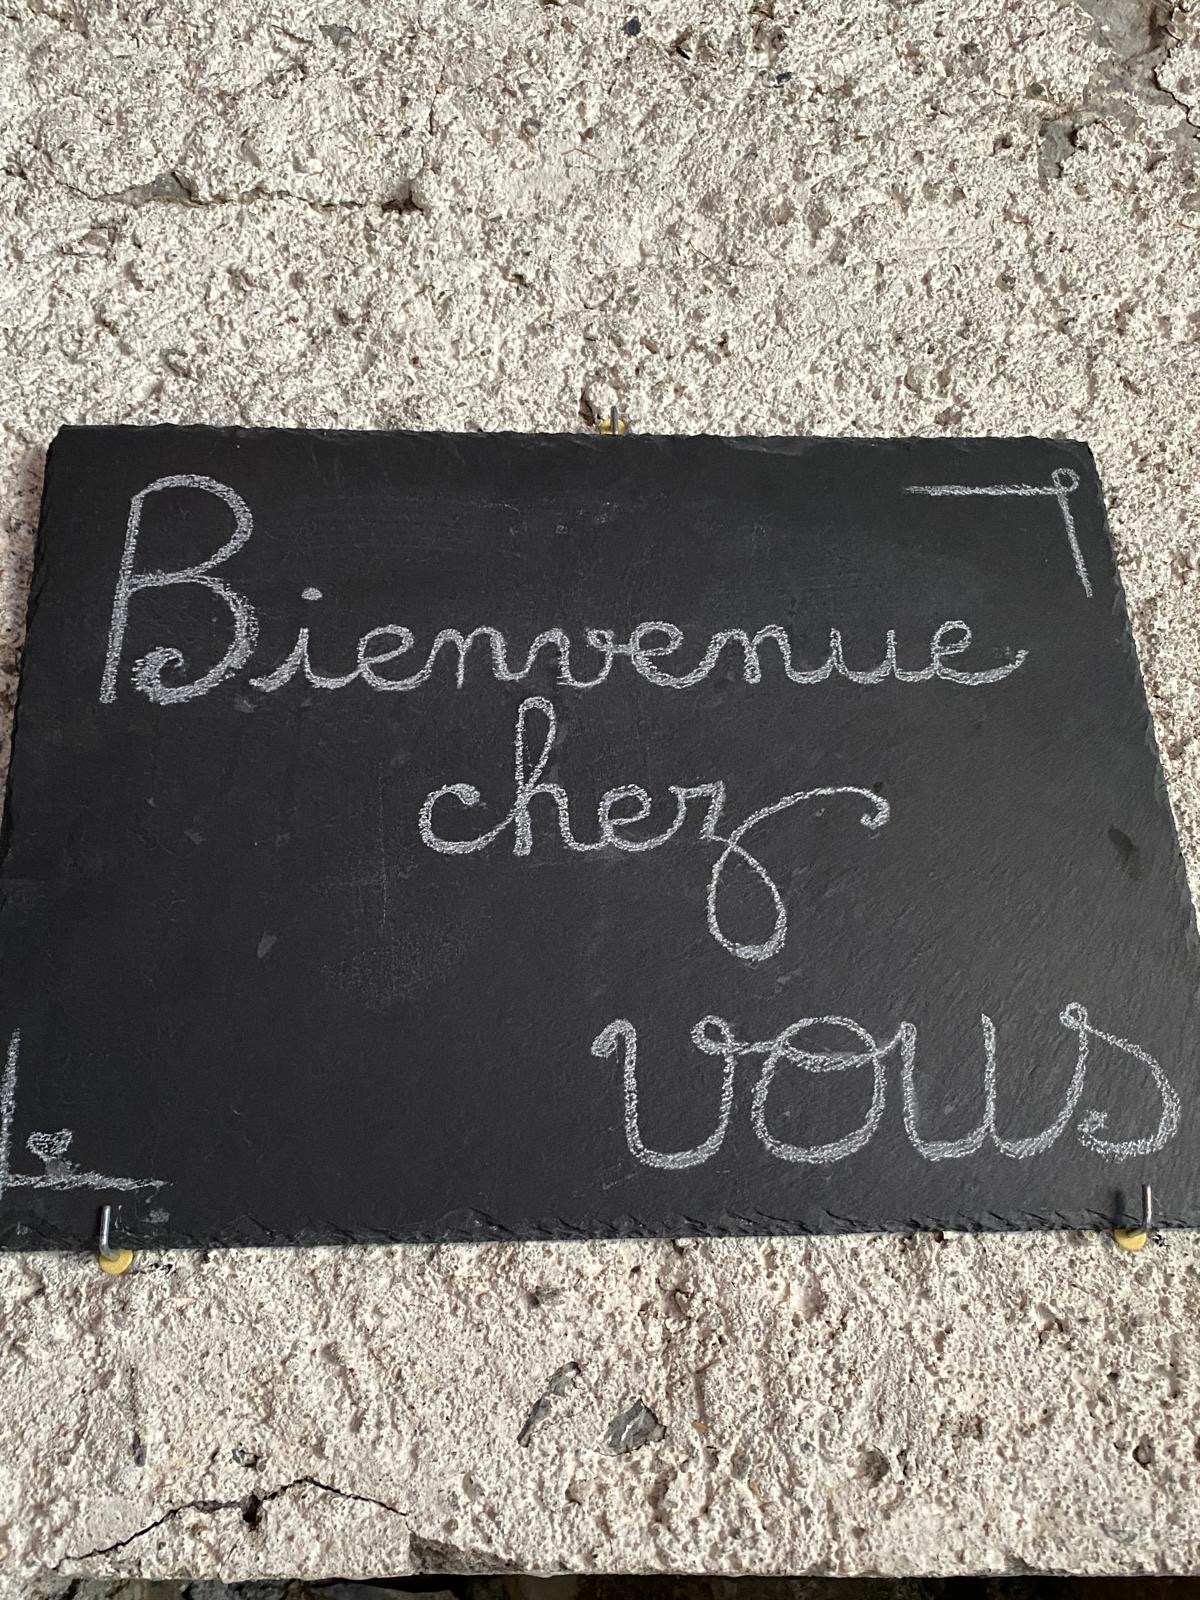 Bienvenue
chez
vous